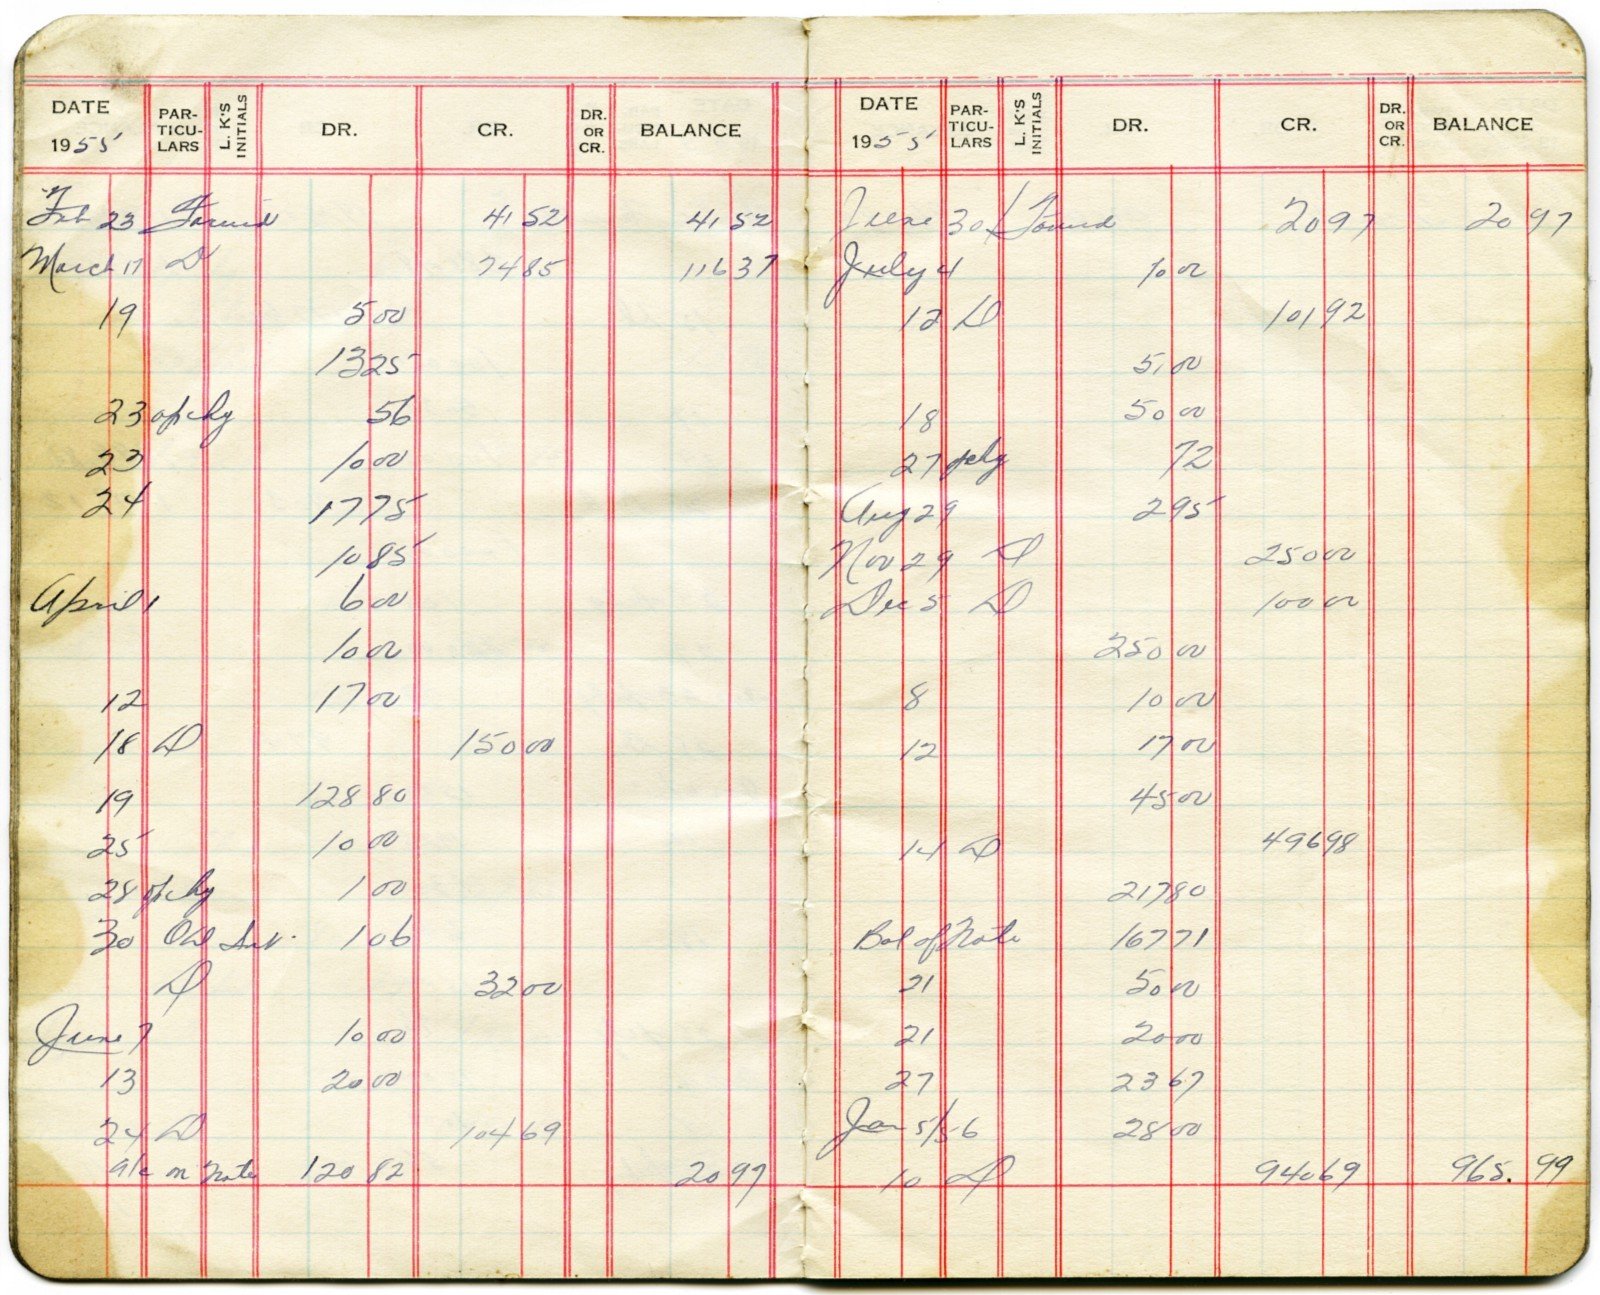 DATE 1955 PAR-TICU-LARS L. K'S INITIALS DR. CR. DR. OR CR. BALANCE
Feb 23 Forw'd 41 52 41 52
March 17 D 74 85 116 37
19 5 00
13 25
23 op chg 56
23 10 00
24 17 75
10 85
April 1 6 00
10 00
12 17 00
18 D 150 00
19 128 80
25 10 00
28 op chg 1 00
30 Od Int. 1 06
D 32 00
June 7 10 00
13 20 00
24 D 104 69
a/c on Note 120 82 20 97
DATE 1955 PAR-TICU-LARS L. K'S INITIALS DR. CR. DR. OR CR. BALANCE
June 30 Forw'd 20 97 20 97
July 4 10 00
12 D 101 92
51 00
18 50 00
27 op chg 72
Aug 29 2 95
Nov 29 D 250 00
Dec 5 D 100 00
250 00
8 10 00
12 17 00
45 00
14 D 496 98
217 80
Bal of Note 167 71
21 50 00
21 20 00
27 23 67
Jan 5/56 28 00
10 D 940 69 965.99